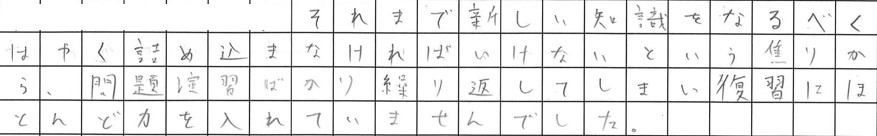 それまで新しい知識をなるべく
はやく詰め込まなければいけないという焦りか
ら、問題演習ばかり繰り返してしまい復習にほ
とんど力を入れていませんでした。